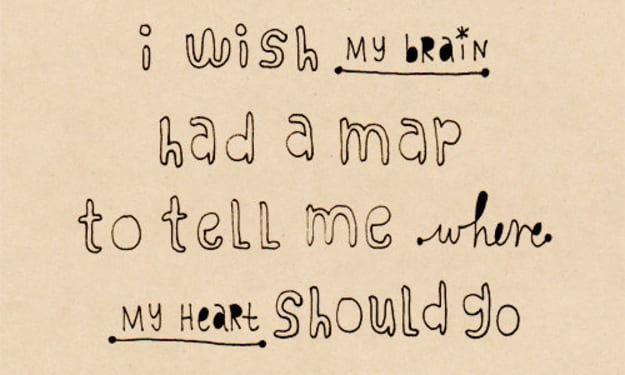 i wish MY BRaiN
had a map
to tell me where
MY HeaRt should go